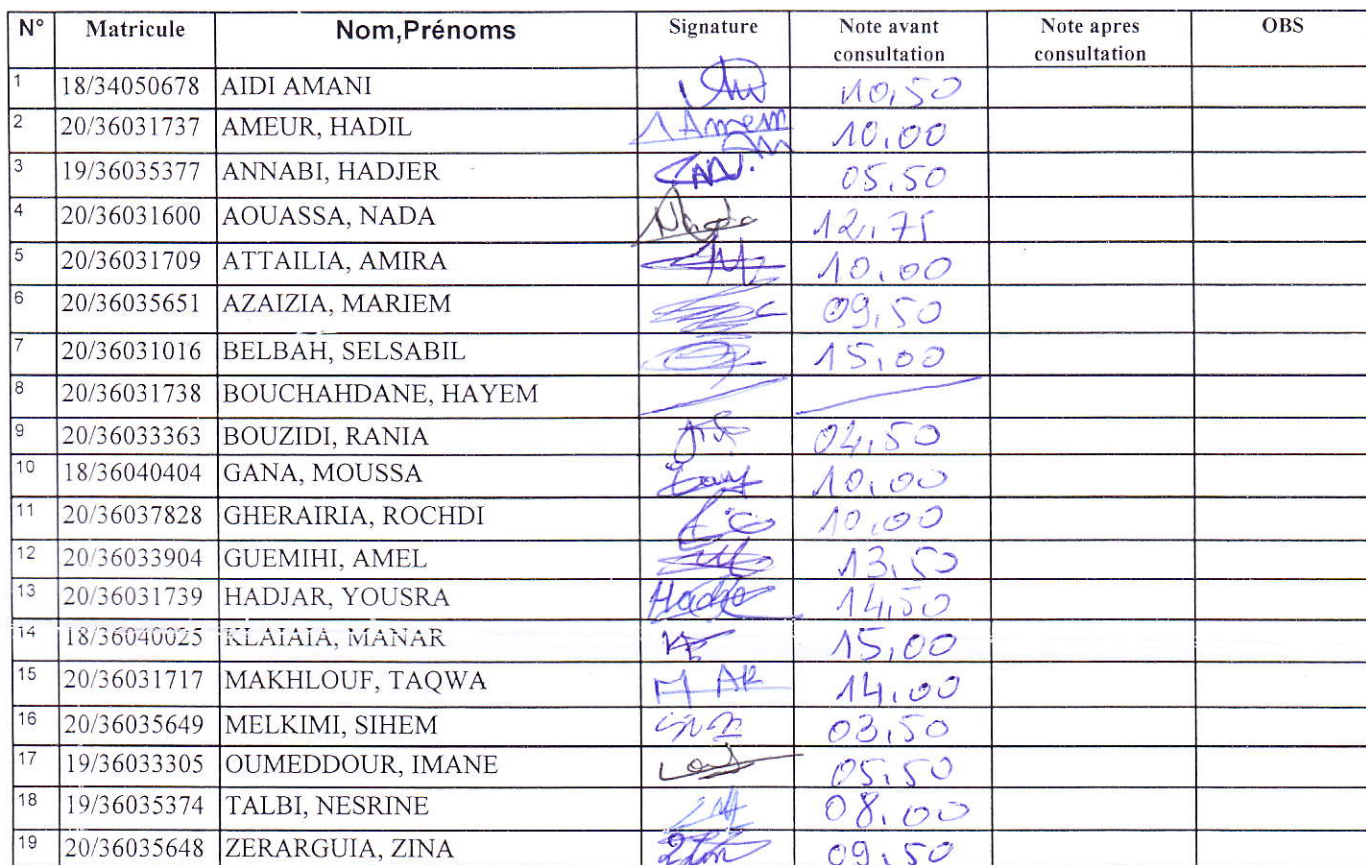 N° Matricule Nom,Prénoms Signature Note avant consultation Note apres consultation OBS
1 18/34050678 AIDI AMANI 10,50
2 20/36031737 AMEUR, HADIL 10,00
3 19/36035377 ANNABI, HADJER 05,50
4 20/36031600 AOUASSA, NADA Nada 12,75
5 20/36031709 ATTAILIA, AMIRA 10,00
6 20/36035651 AZAIZIA, MARIEM 09,50
7 20/36031016 BELBAH, SELSABIL 15,00
8 20/36031738 BOUCHAHDANE, HAYEM
9 20/36033363 BOUZIDI, RANIA 04,50
10 18/36040404 GANA, MOUSSA 10,00
11 20/36037828 GHERAIRIA, ROCHDI 10,00
12 20/36033904 GUEMIHI, AMEL 13,50
13 20/36031739 HADJAR, YOUSRA 14,50
14 18/36040025 KLAIAIA, MANAR 15,00
15 20/36031717 MAKHLOUF, TAQWA 14,00
16 20/36035649 MELKIMI, SIHEM 03,50
17 19/36033305 OUMEDDOUR, IMANE 05,50
18 19/36035374 TALBI, NESRINE 08,00
19 20/36035648 ZERARGUIA, ZINA 09,50